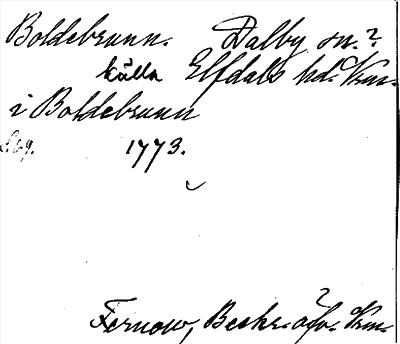 Boldebrunn. Dalby sn.?
källa Elfdals hd. Vrm.
i Boldebrunn
S. 69. 1773.
Fernow, Beskr. öfv. Vrm.